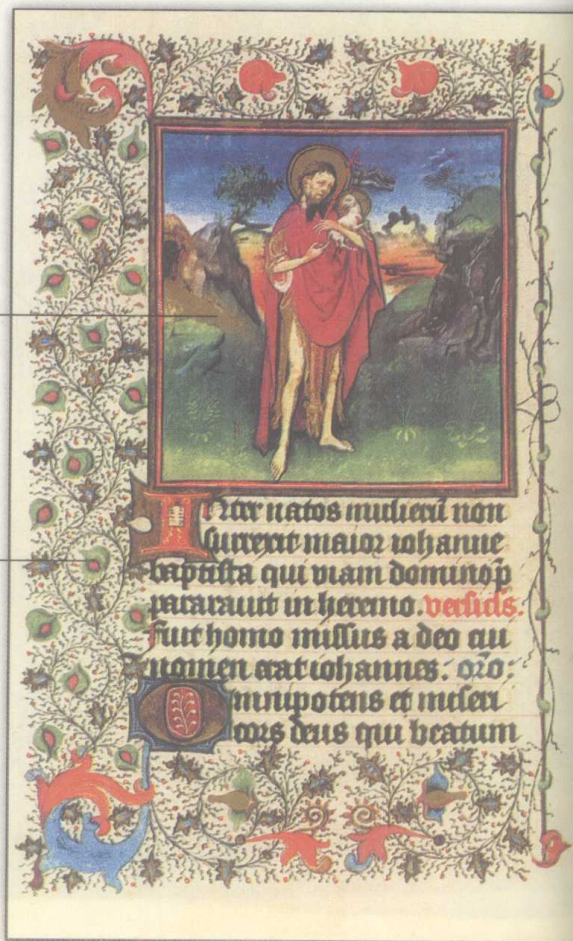 Inter natos mulierū non
surrexit maior iohanne
baptista qui viam domino p̄
pararauit in heremo. versicls.
Fuit homo missus a deo cui
nomen erat iohannes. or̄o.
Omnipotens et miseri
cors deus qui beatum